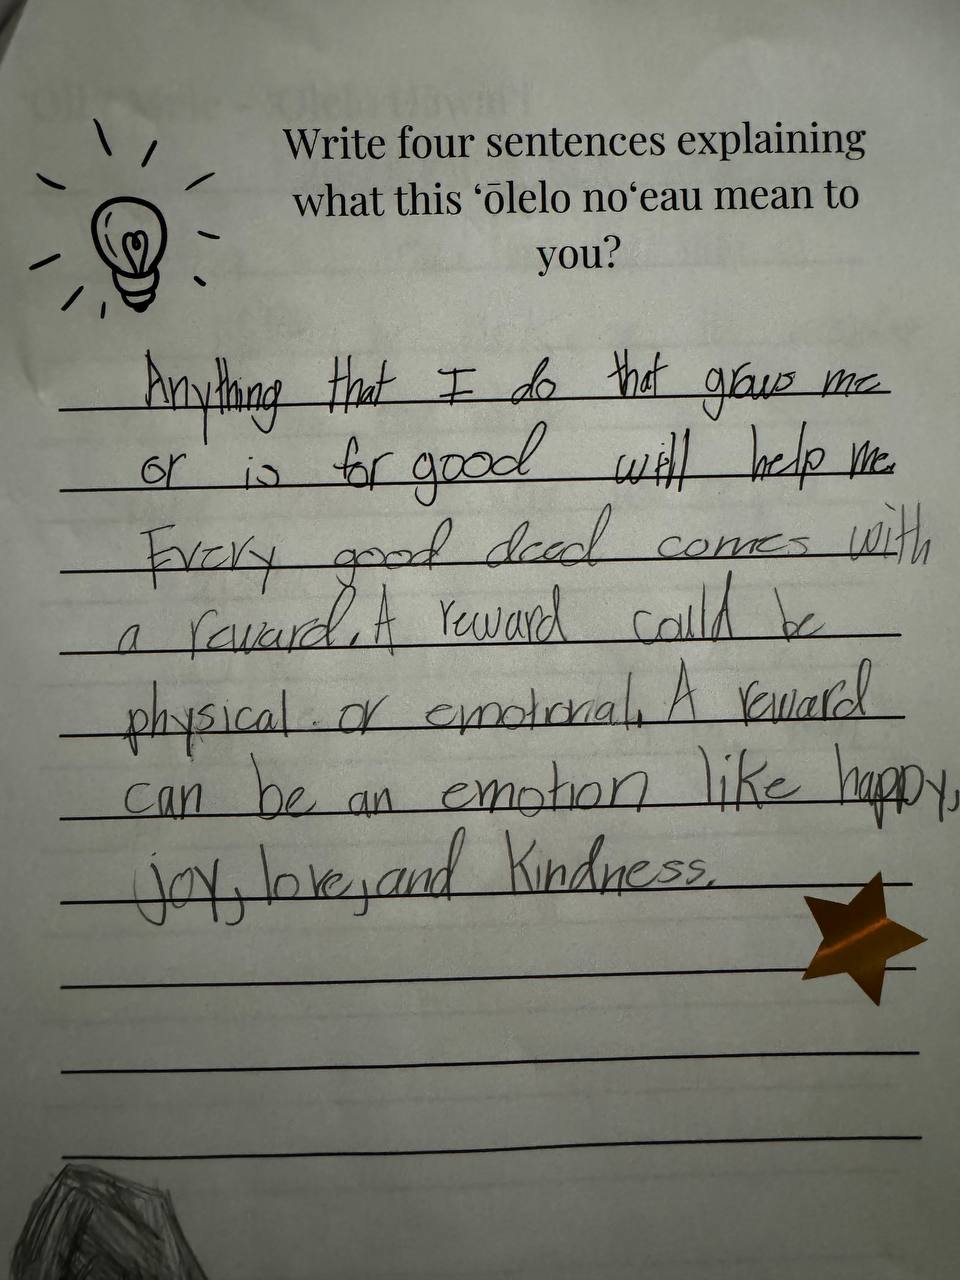 Write four sentences explaining
what this ʻōlelo noʻeau mean to
you?
Anything that I do that grows me
or is for good will help me.
Every good deed comes with
a reward. A reward could be
physical or emotional. A reward
can be an emotion like happy,
joy, love, and kindness.